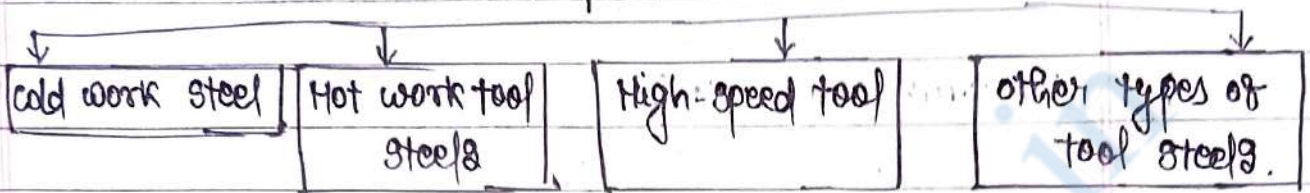 cold work steel
Hot work tool
steels
High-speed tool
other types of
tool steels.
in